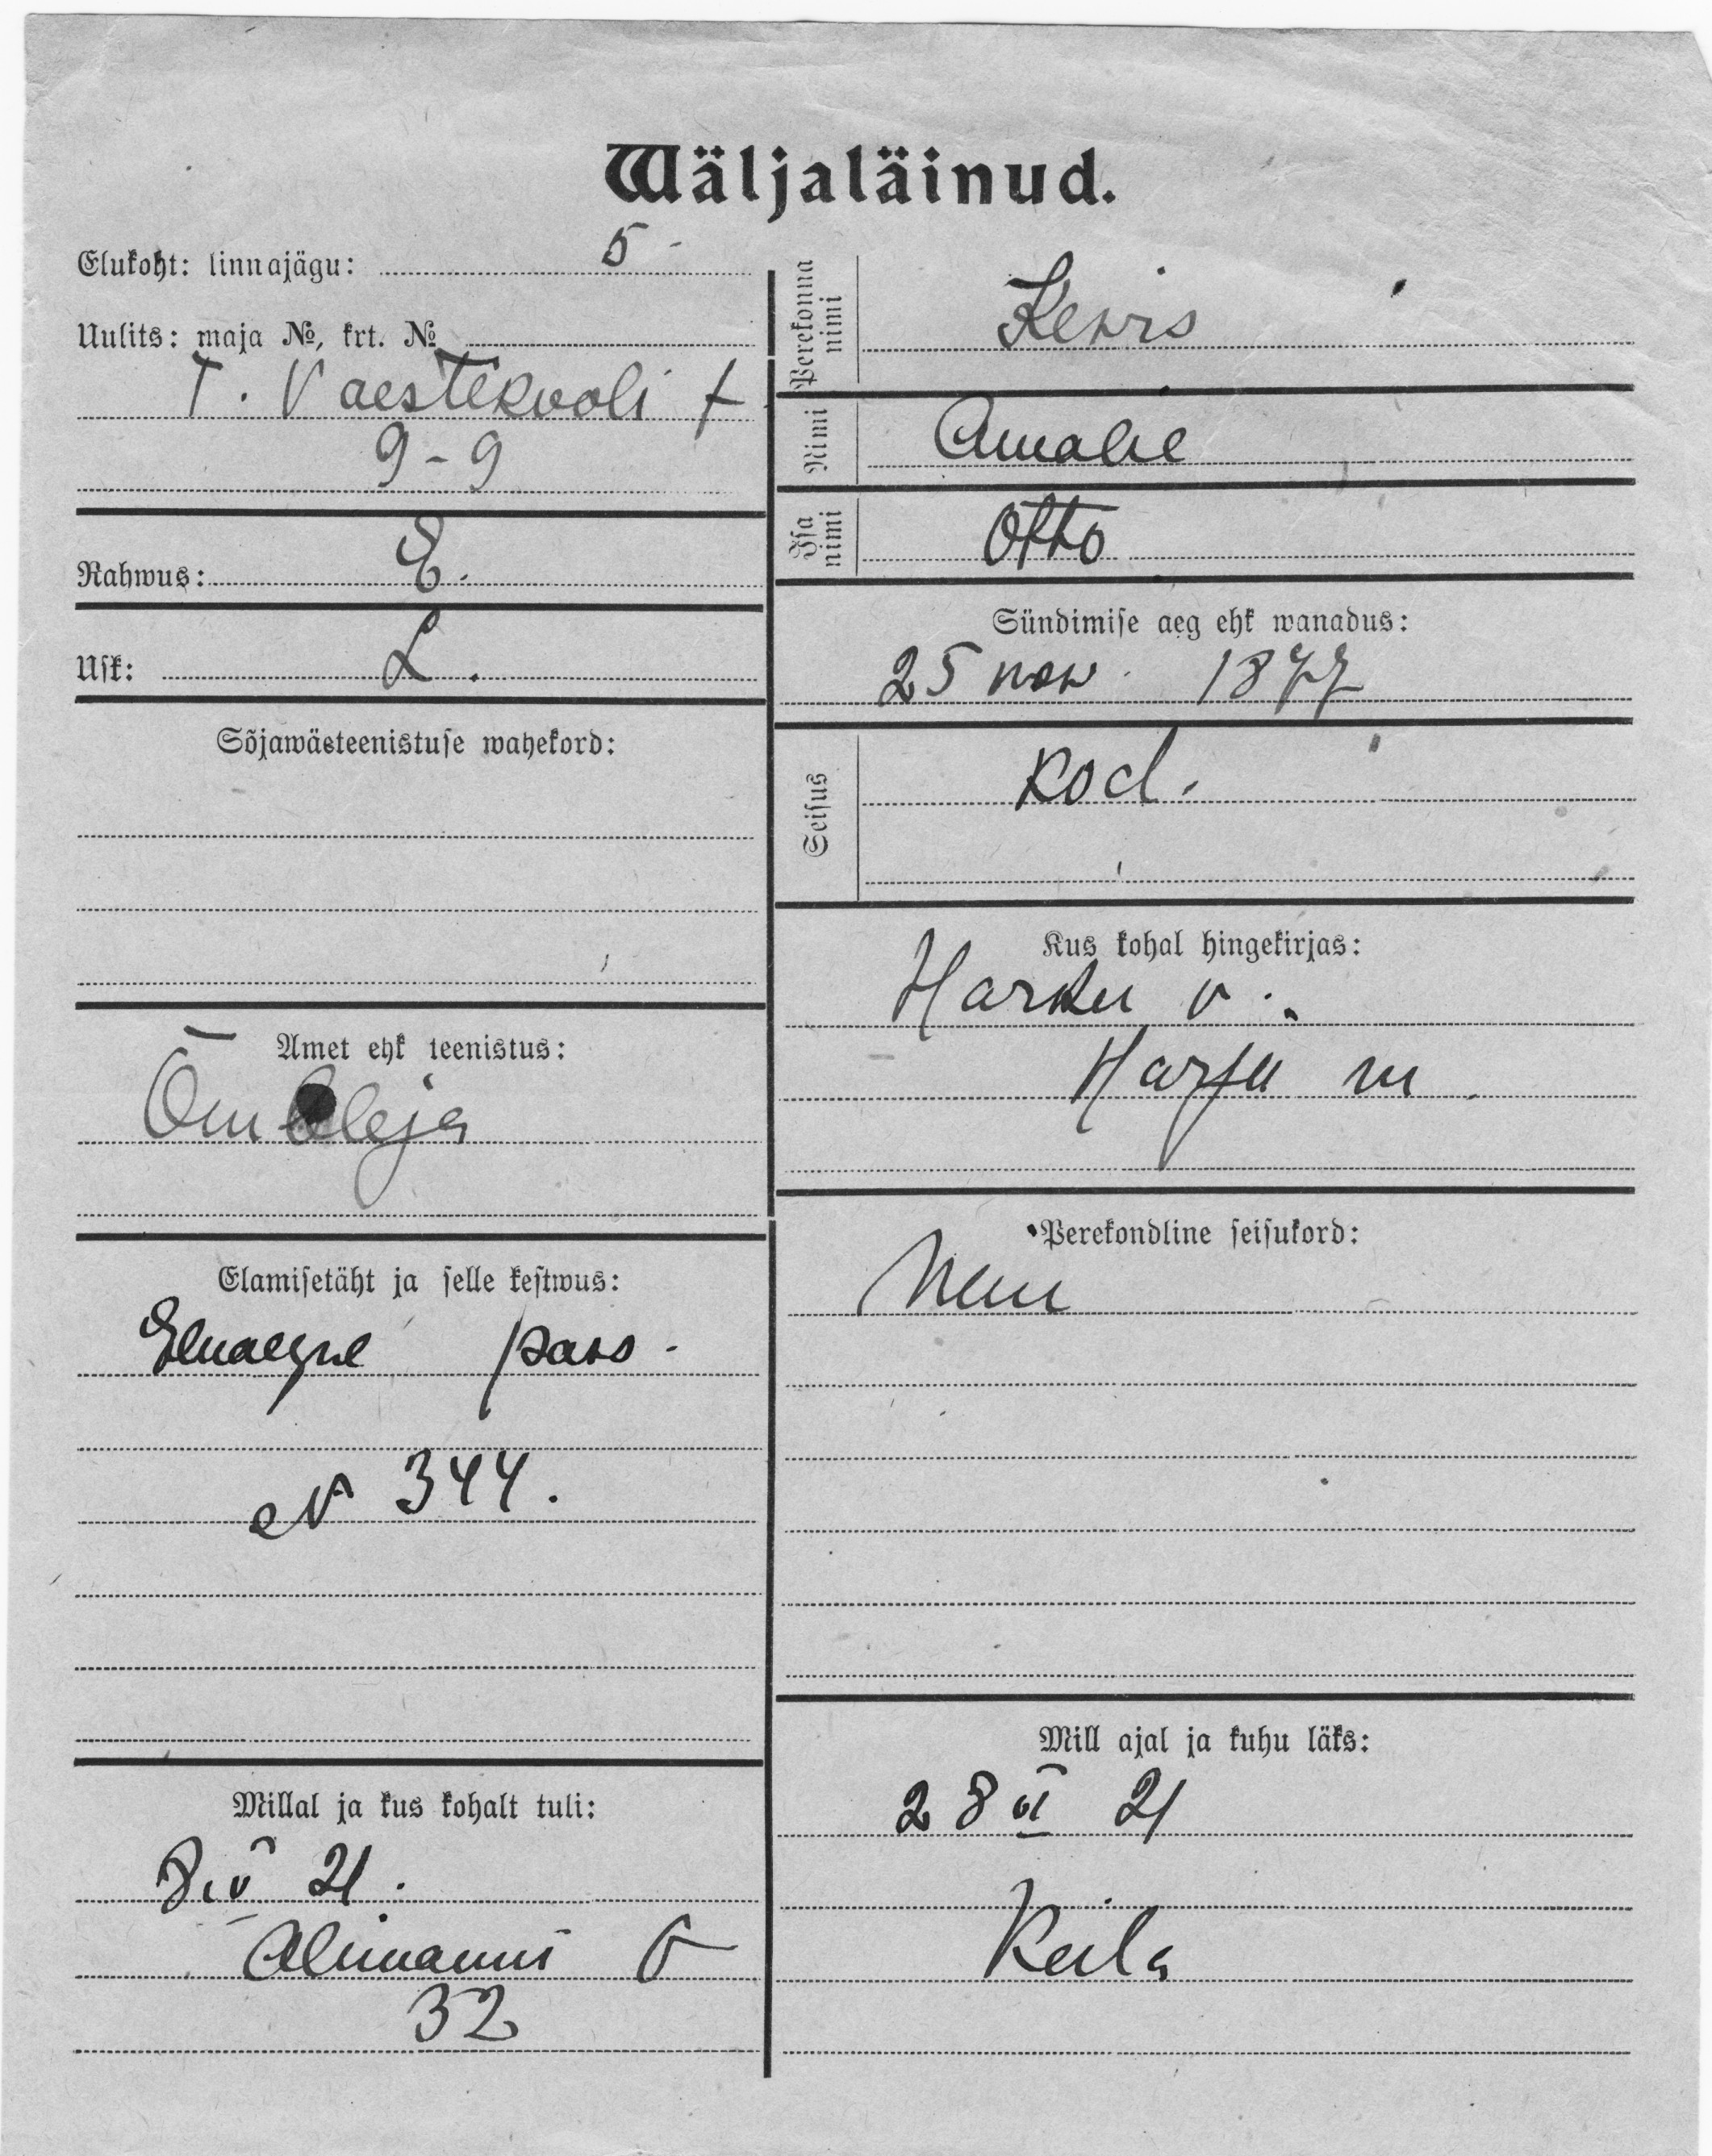 Wäljaläinud.
Elukoht: linnajägu: 5
Uulits: maja №, krt. №
T. Vaestekooli t
9-9
Rahwus: E.
Usk: L.
Sõjawäeteenistuse wahekord:
Amet ehk teenistus:
Õmbleja
Elamisetäht ja selle kestwus:
Eluaegne pass.
N 344.
Millal ja kus kohalt tuli:
8. V 21.
32
Perekonna nimi
Nimi Amalie
Isa nimi Otto
Sündimise aeg ehk wanadus:
25 now. 1877
Seisus kod.
Kus kohal hingekirjas:
Harku v.
Harju m
Perekondline seisukord:
Mill ajal ja kuhu läks:
28 VI 21
Keila